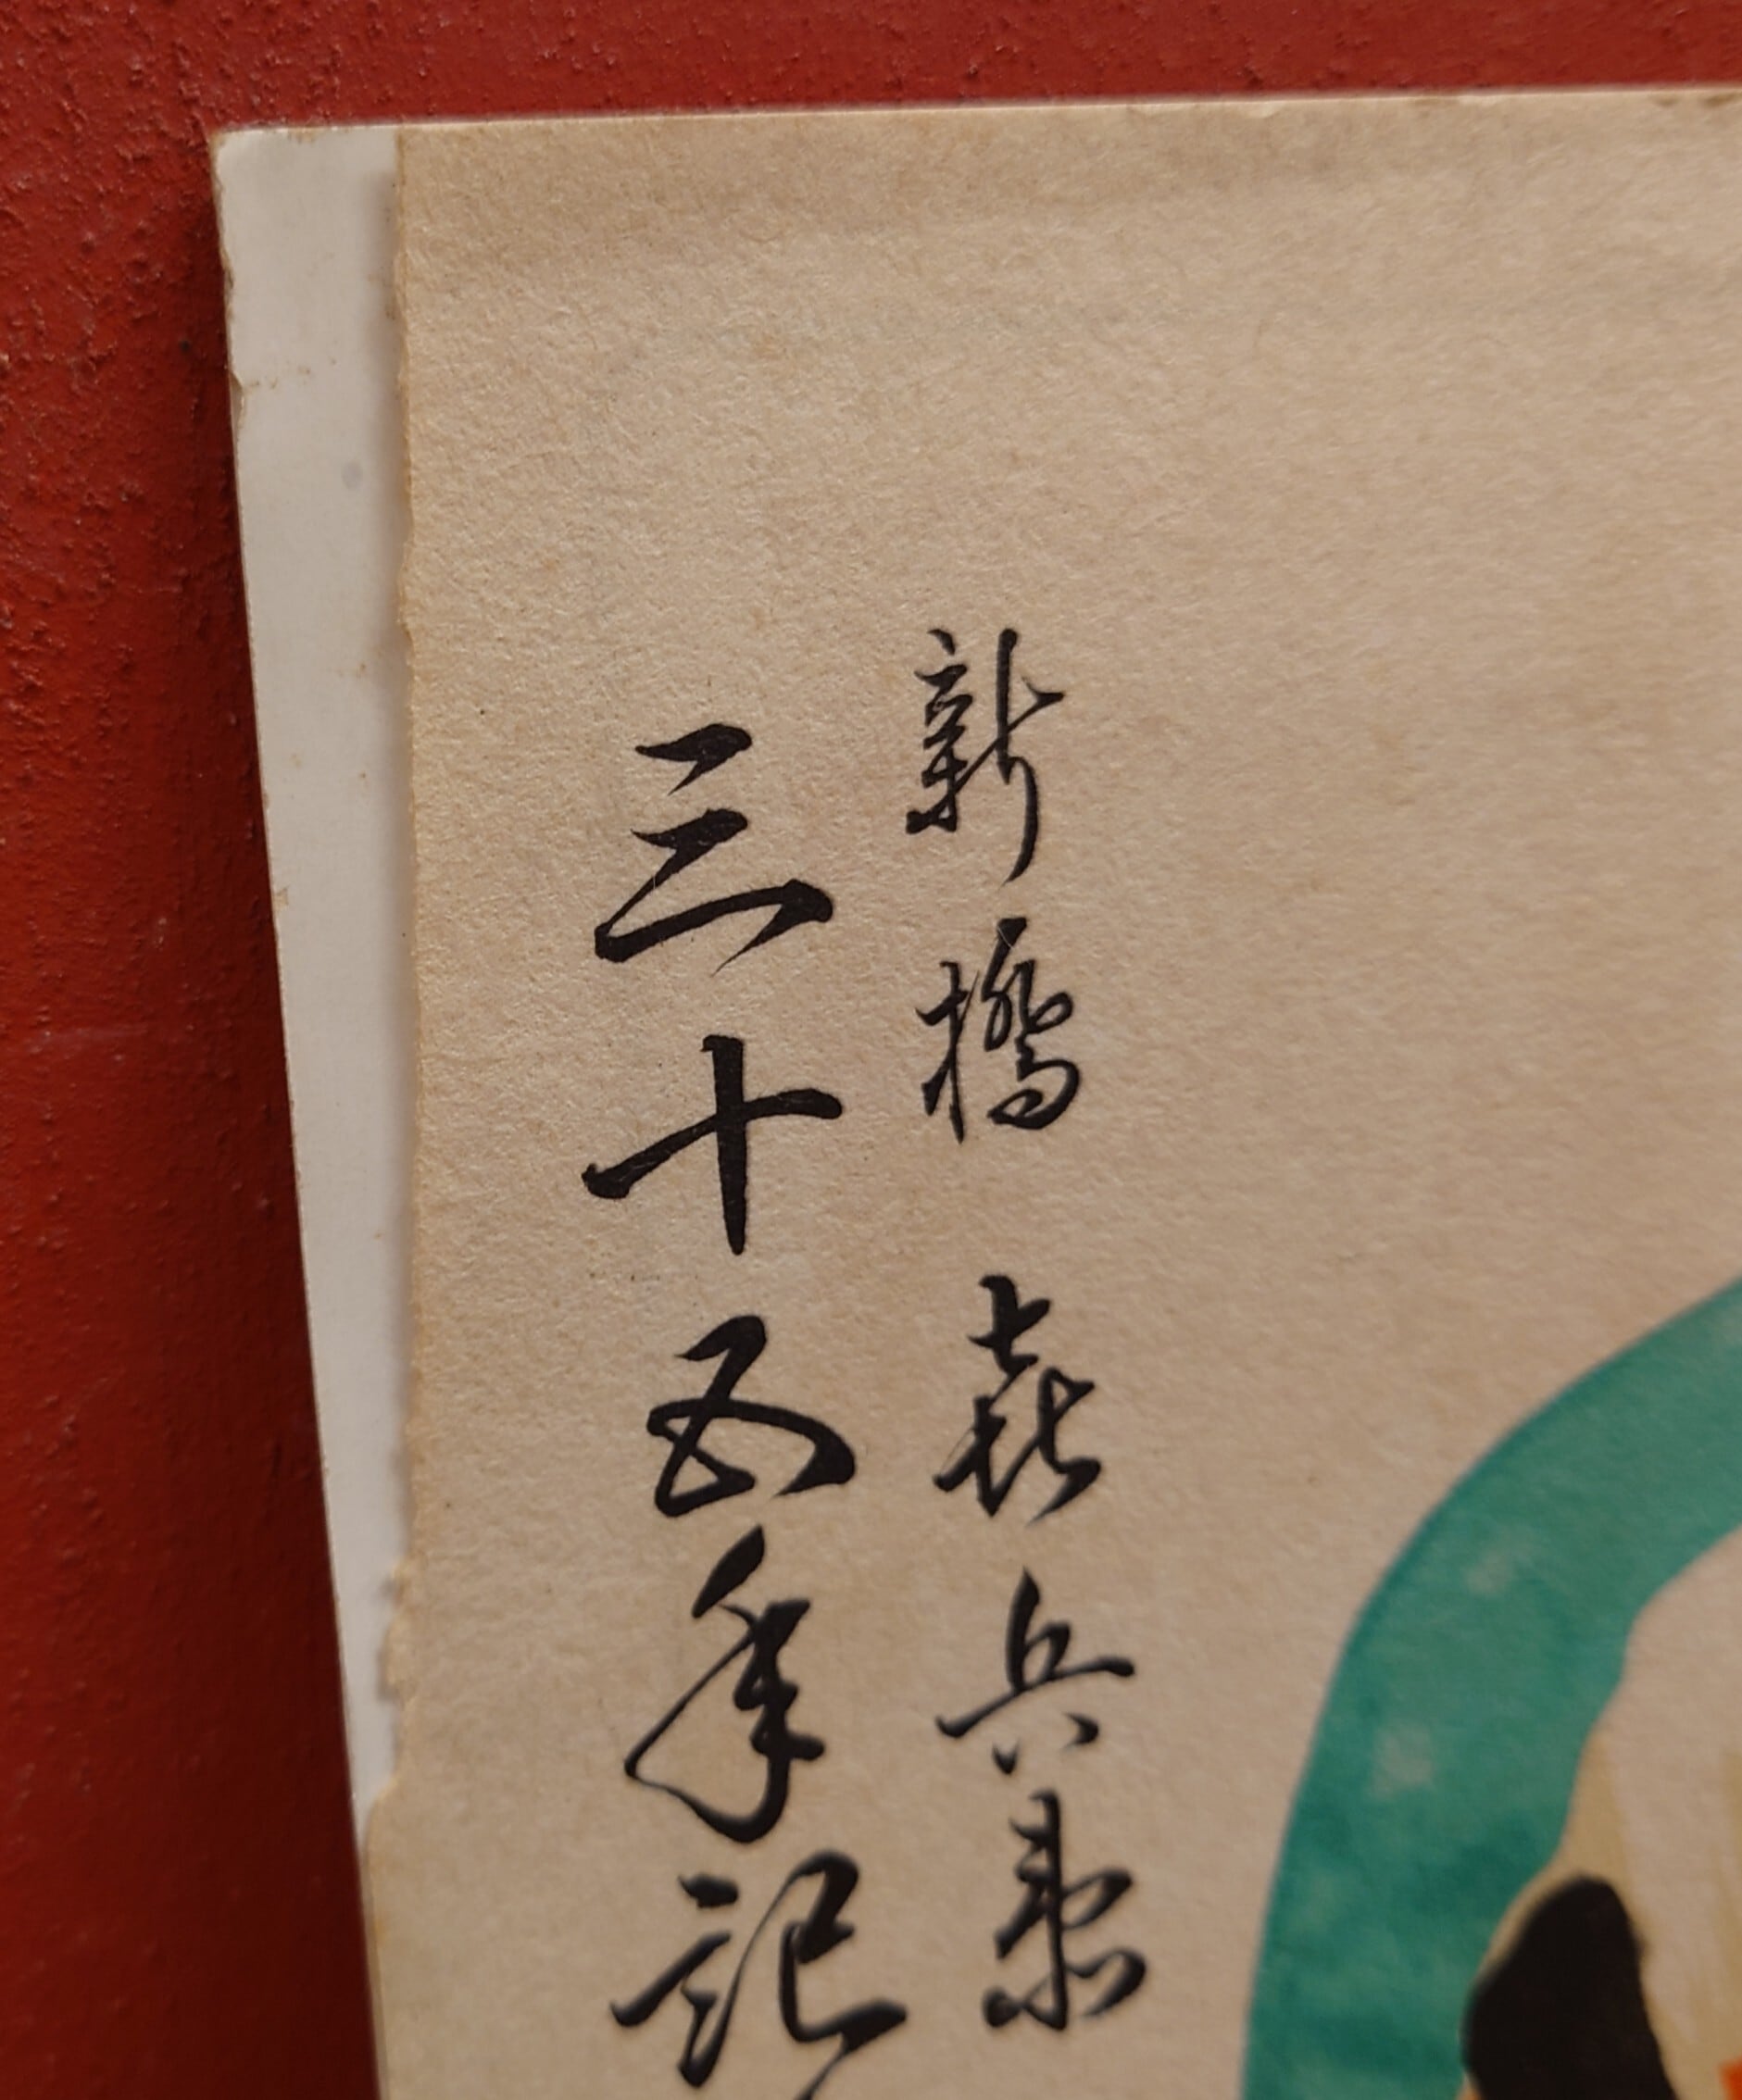 新橋 㐂兵衛
三十五年記